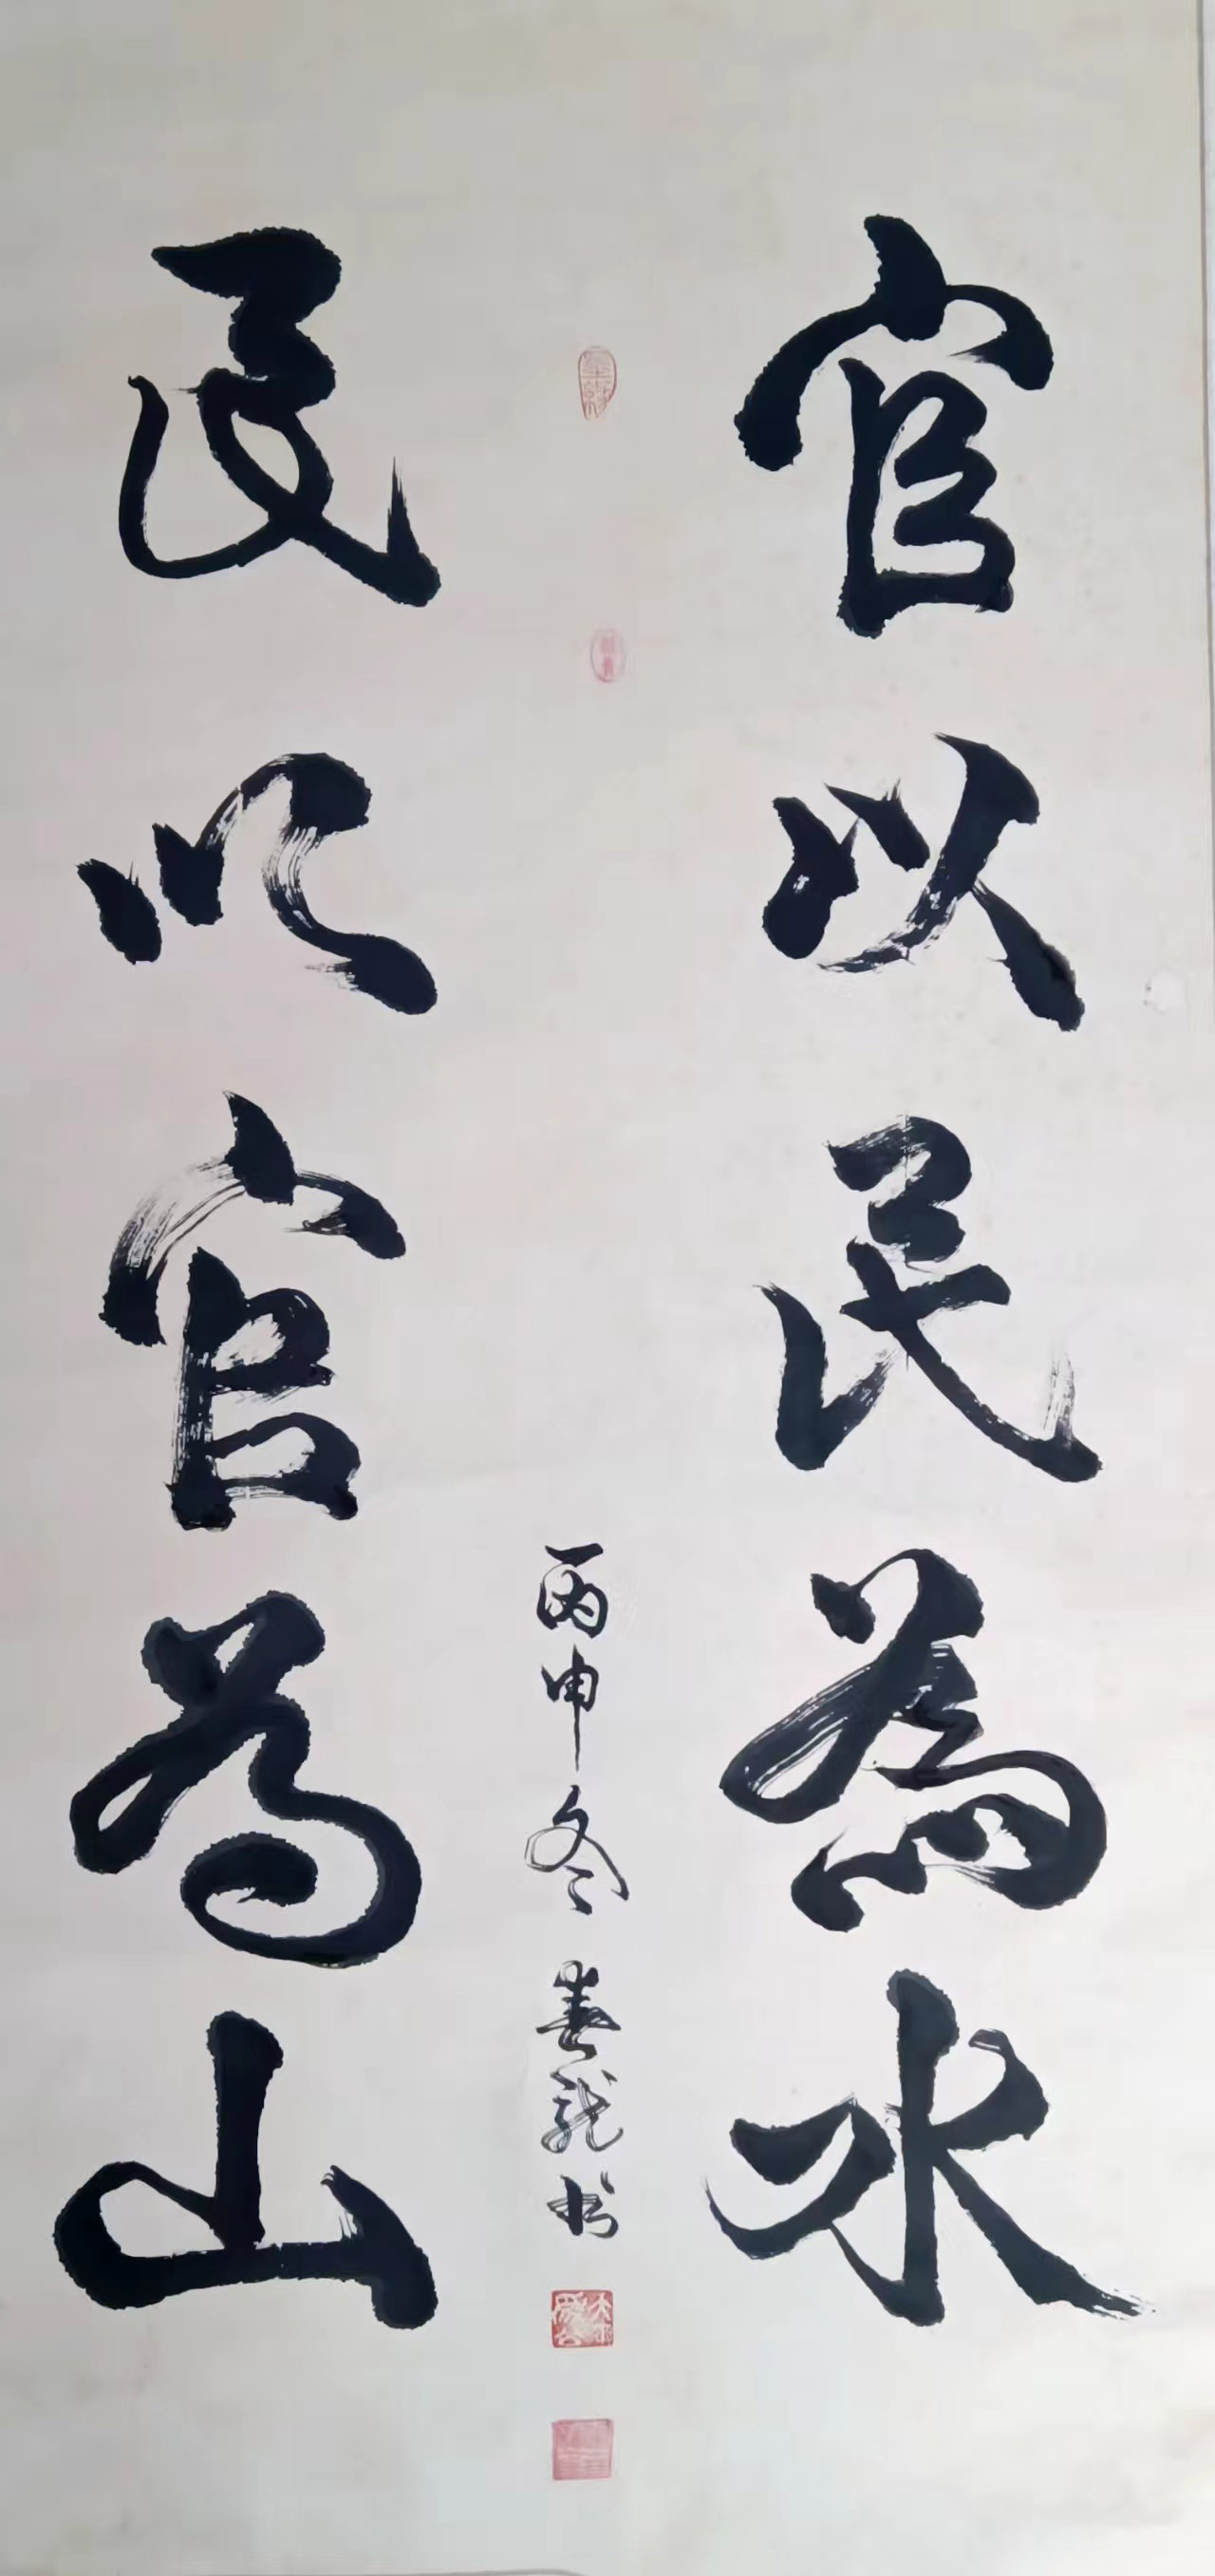 官以民為水
民以官為山
丙申冬 春龍书